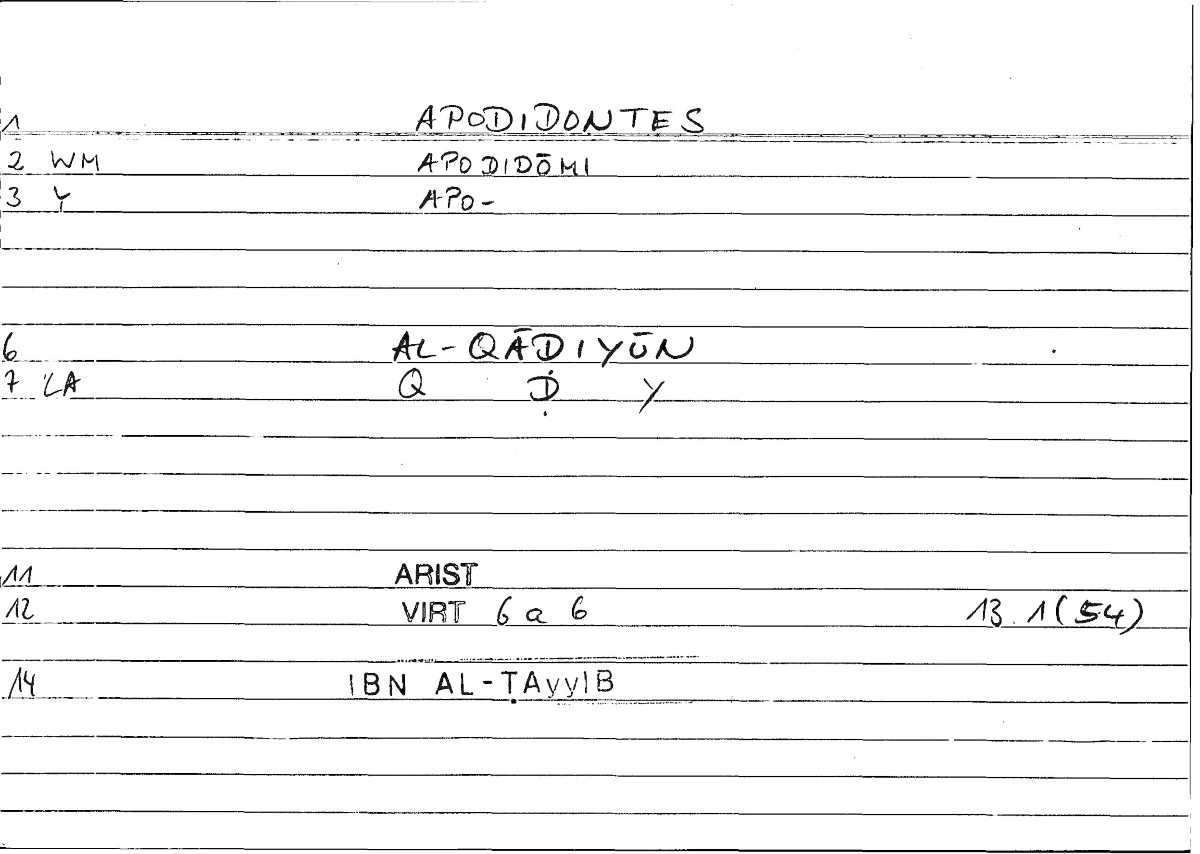 1 APODIDONTES
2 WM APODIDŌMI
3 Y APO-
6 AL-QĀḌIYŪN
7 LA Q Ḍ Y
11 ARIST
12 VIRT 6 a 6 13.1(54)
14 IBN AL-ṬAyyIB